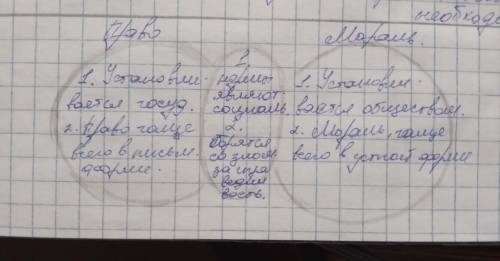 необход
Право
Мораль.
1. Устанавли-
вается госуд.
2. Право чаще
всего в письм.
форме.
1.
нормы
являют.
социаль.
2.
борятся
со злом
за спра
ведли
вость.
1. Устанавли-
вается обществом.
2. Мораль, чаще
всего в устной форме